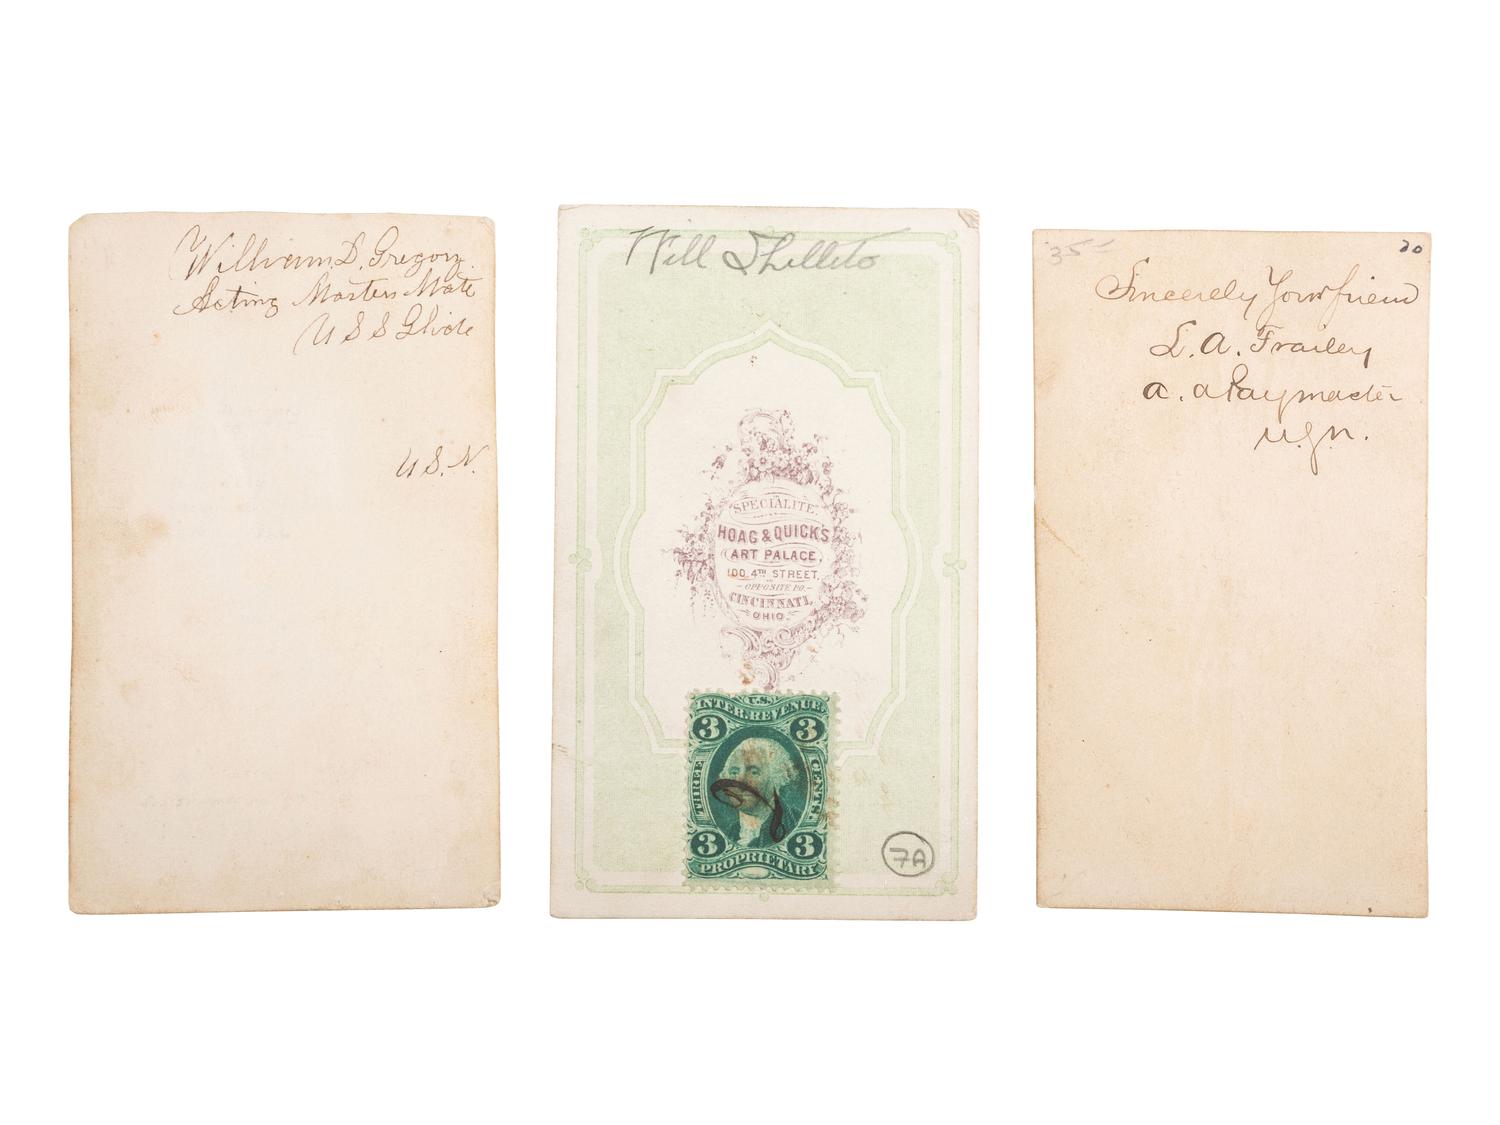 William D. Gregory
Acting Masters Mate
U S S Glide
U.S.N.
Will Shillito
SPECIALITE.
HOAG & QUICK'S
ART PALACE,
100 4TH STREET,
OPPOSITE P.O.
CINCINNATI,
OHIO.
U.S.
INTER. REVENUE.
3 3
THREE CENTS.
3 3
PROPRIETARY
7A
35 20
Sincerely Your friend
L. A. Frailey
a. a Paymaster
U.S.N.